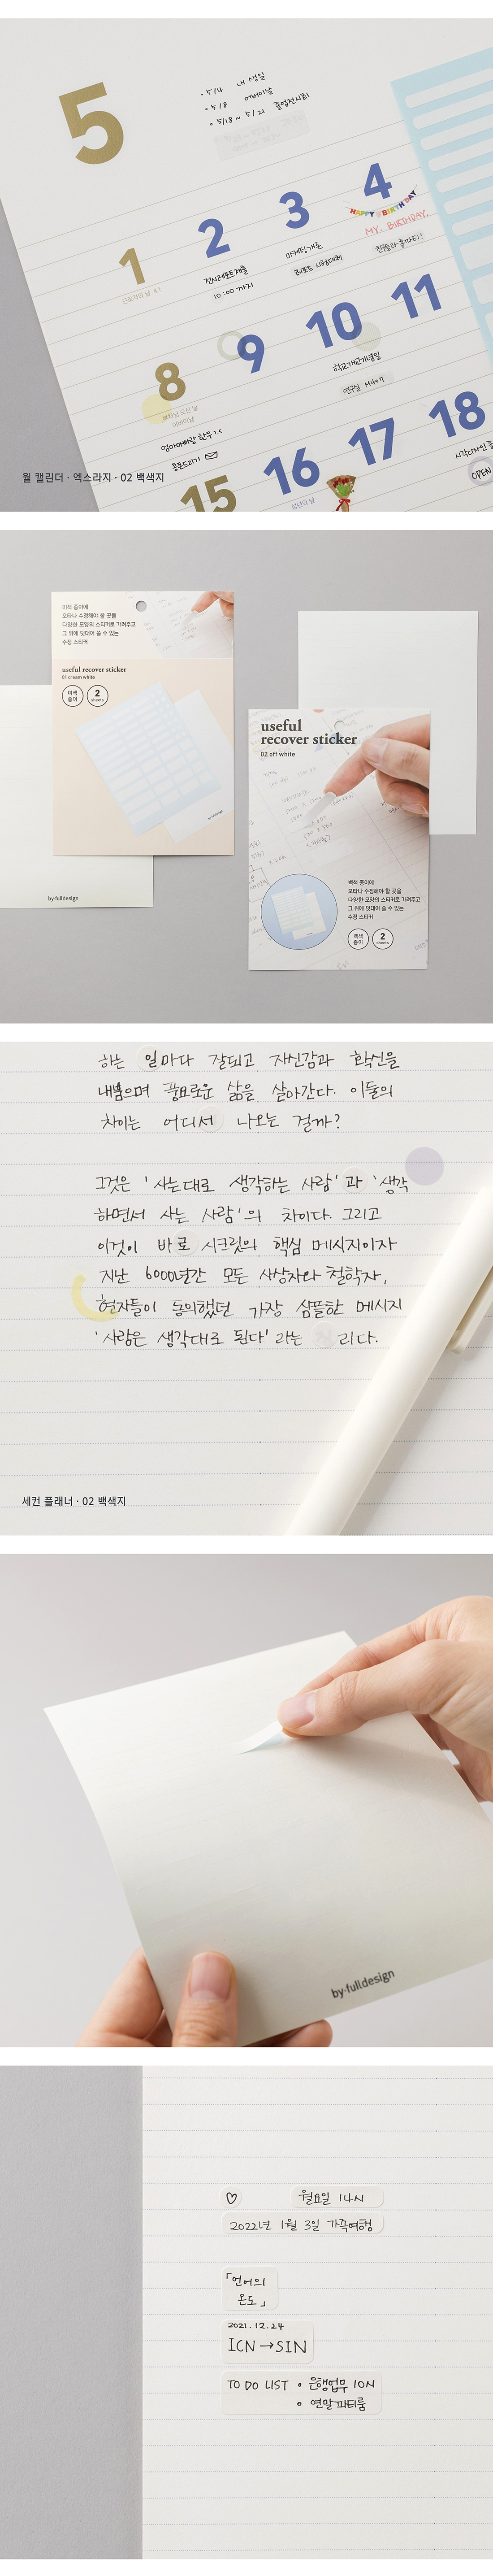 5
• 5/4 내 생일
• 5/8 어버이날
• 5/18 ~ 5/21 졸업전시회
1
근로자의 날 4.1
2
전시레포트제출
10:00 까지
3
마케팅개론
레포트
4
HAPPY BIRTHDAY
MY. BIRTHDAY.
8
부처님 오신 날
어버이날
용돈드리기
9
10
학교개교기념일
11
15
16
성년의 날
17
18
시각디자인 졸
OPEN
월 캘린더 · 엑스라지 · 02 백색지
미색 종이에
오타나 수정해야 할 곳을
다양한 모양의 스티커로 가려주고
그 위에 덧대어 쓸 수 있는
수정 스티커
useful recover sticker
01 cream white
미색
종이
2
sheets
by fulldesign
useful
recover sticker
02 off white
백색 종이에
오타나 수정해야 할 곳을
다양한 모양의 스티커로 가려주고
그 위에 덧대어 쓸 수 있는
수정 스티커
백색
종이
2
sheets
by fulldesign
하는 일마다 잘되고 자신감과 확신을
내뿜으며 풍요로운 삶을 살아간다. 이들의
차이는 어디서 나오는 걸까?
그것은 '사는대로 생각하는 사람'과 '생각
하면서 사는 사람'의 차이다. 그리고
이것이 바로 시크릿의 핵심 메시지이자
지난 6000년간 모든 사상자와 철학자,
현자들이 동의했던 가장 심플한 메시지
'사람은 생각대로 된다' 라는 리다.
세컨 플래너 · 02 백색지
by·fulldesign
♡ 월요일 14시
2022년 1월 3일 가족여행
「언어의
온도」
2021.12.24
ICN → SIN
TO DO LIST • 은행업무 10시
• 연말파티룸